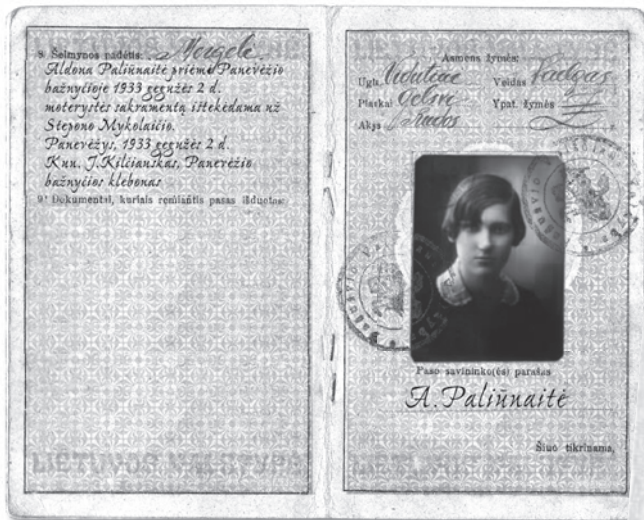 8 Šeimynos padėtis: Mergelė
Aldona Paliūnaitė priėmė Panevėžio
bažnyčioje 1933 gegužės 2 d.
moterystės sakramentą ištekėdama už
Stepono Mykolaičio.
Panevėžys, 1933 gegužės 2 d.
Kun. J.Kilčiauskas, Panevėžio
bažnyčios klebonas
9. Dokumentai, kuriais remiantis pasas išduotas:
LIETUVOS VALSTYBĖ
Asmens žymės:
Ugis Vidutinė Veidas Pailgas
Plaukai Gelsvi Ypat. žymės
Akys
Paso savininko(ės) parašas
A. Paliūnaitė
Šiuo tikrinama,